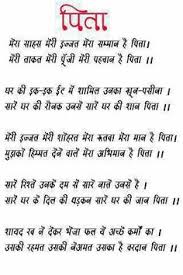 पिता
मेरा साहस मेरी इज्जत मेरा सम्मान है पिता।
मेरी ताकत मेरी पूँजी मेरी पहचान है पिता ।।
घर की इक-इक ईंट में शामिल उनका खून-पसीना ।
सारे घर की रौनक उनसे सारे घर की शान पिता ।।
मेरी इज्जत मेरी शौहरत मेरा रूतबा मेरा मान है पिता।
मुझको हिम्मत देने वाले मेरा अभिमान है पिता ।।
सारे रिश्ते उनके दम से सारे नाते उनसे है ।
सारे घर के दिल की धड़कन सारे घर की जान पिता ।।
शायद रब ने देकर भेजा फल ये अच्छे कर्मों का ।
उसकी रहमत उसकी नेअमत उसका है वरदान पिता ।।